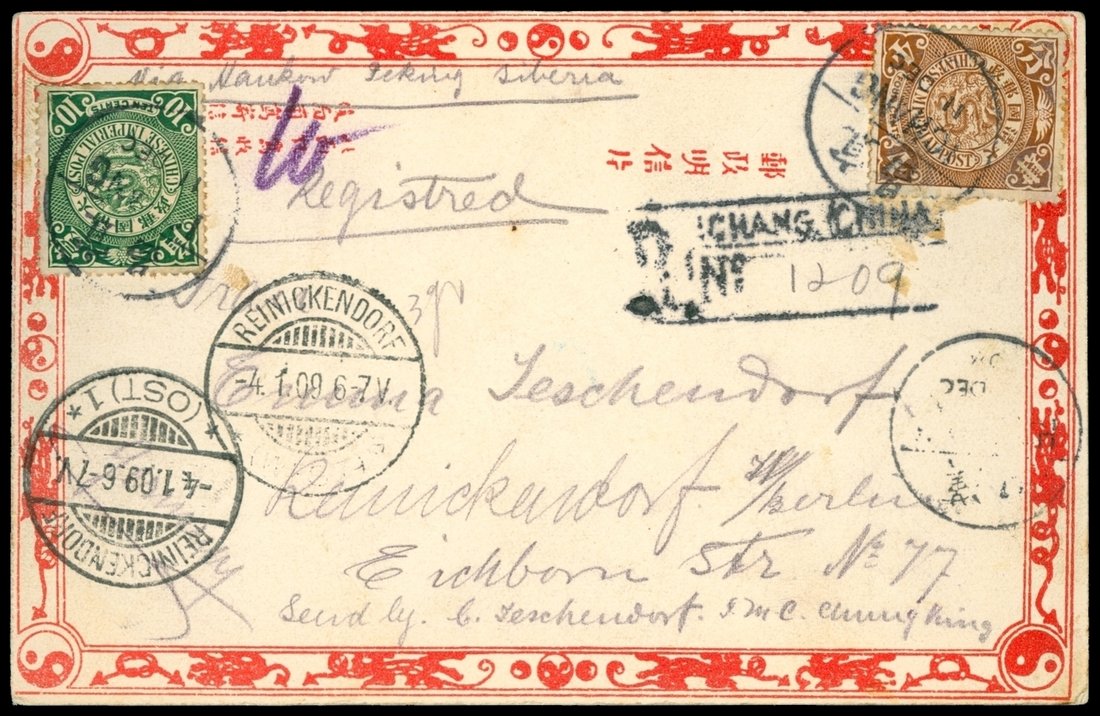 Via Hankow Peking Siberia
CHINESE IMPERIAL POST
10
10
CHINESE IMPERIAL POST
郵政明信片
Registred
R. ICHANG (CHINA)
No 1209
REINICKENDORF
-4.1.09.6-7V.
(OST)
Emma Teschendorf
REINICKENDORF
-4.1.09.6-7V.
* (OST) 1 *
DEC
Reinickendorf W/Berlin
Eichborn Str No 77
Send by. C. Teschendorf. I M C. Chungking